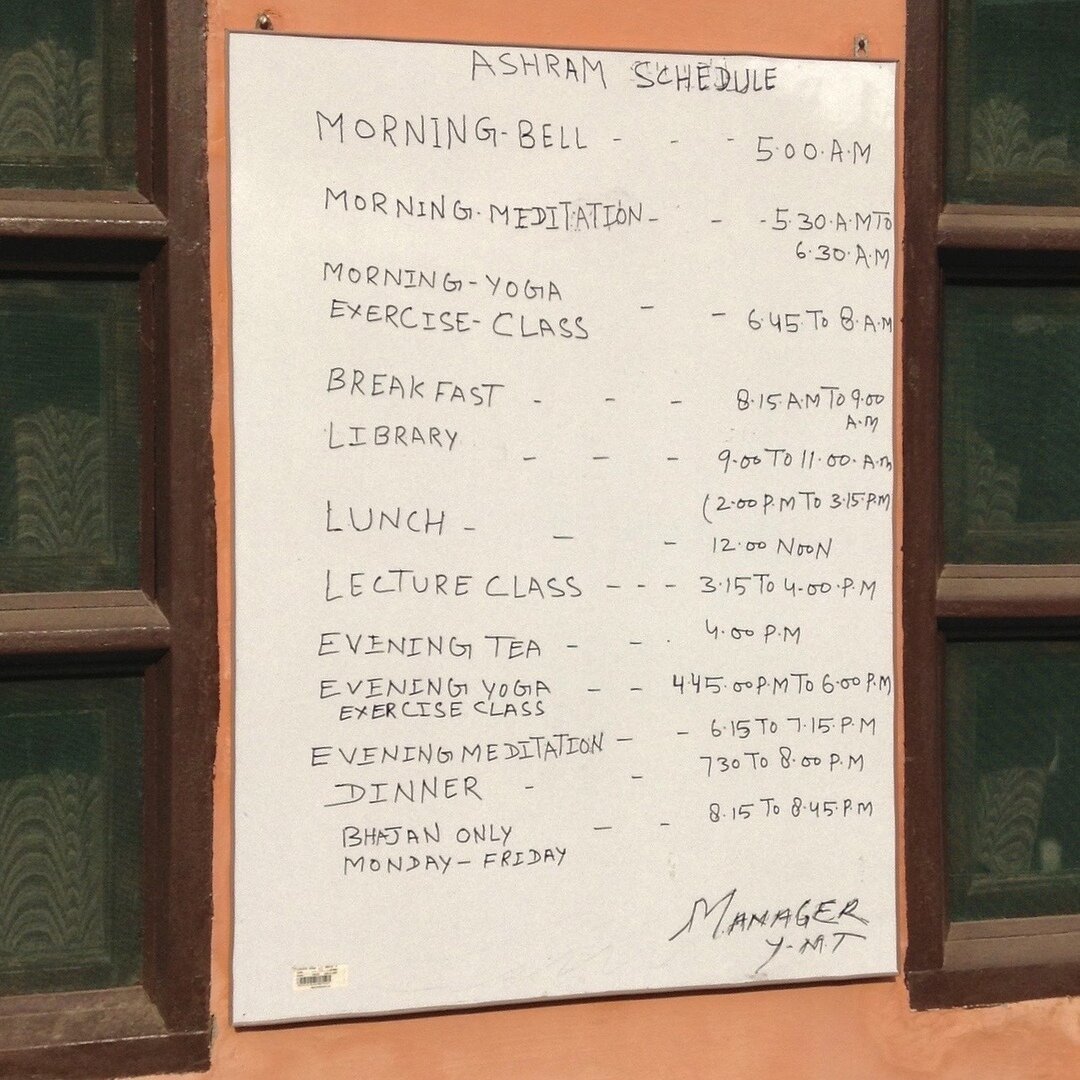 ASHRAM SCHEDULE
MORNING-BELL - - - 5·00·A·M
MORNING·MEDITATION- - - 5·30·A·M TO
6·30·A·M
MORNING-YOGA
EXERCISE-CLASS - - 6·45 TO 8·A·M
BREAKFAST - - - 8·15·A·M TO 9·00
A·M
LIBRARY - - - 9·00 TO 11·00·A·M
(2·00 P.M TO 3·15·P.M
LUNCH - - - 12·00 NOON
LECTURE CLASS - - - 3·15 TO 4·00·P·M
EVENING TEA - - · 4·00 P.M
EVENING YOGA - - 4·45·00 P.M TO 6·00 P.M
EXERCISE CLASS
EVENING MEDITATION - - 6·15 TO 7·15·P·M
DINNER - - 730 TO 8·00 P.M
BHAJAN ONLY - - 8·15 TO 8·45·P·M
MONDAY- FRIDAY
MANAGER
Y-M·T